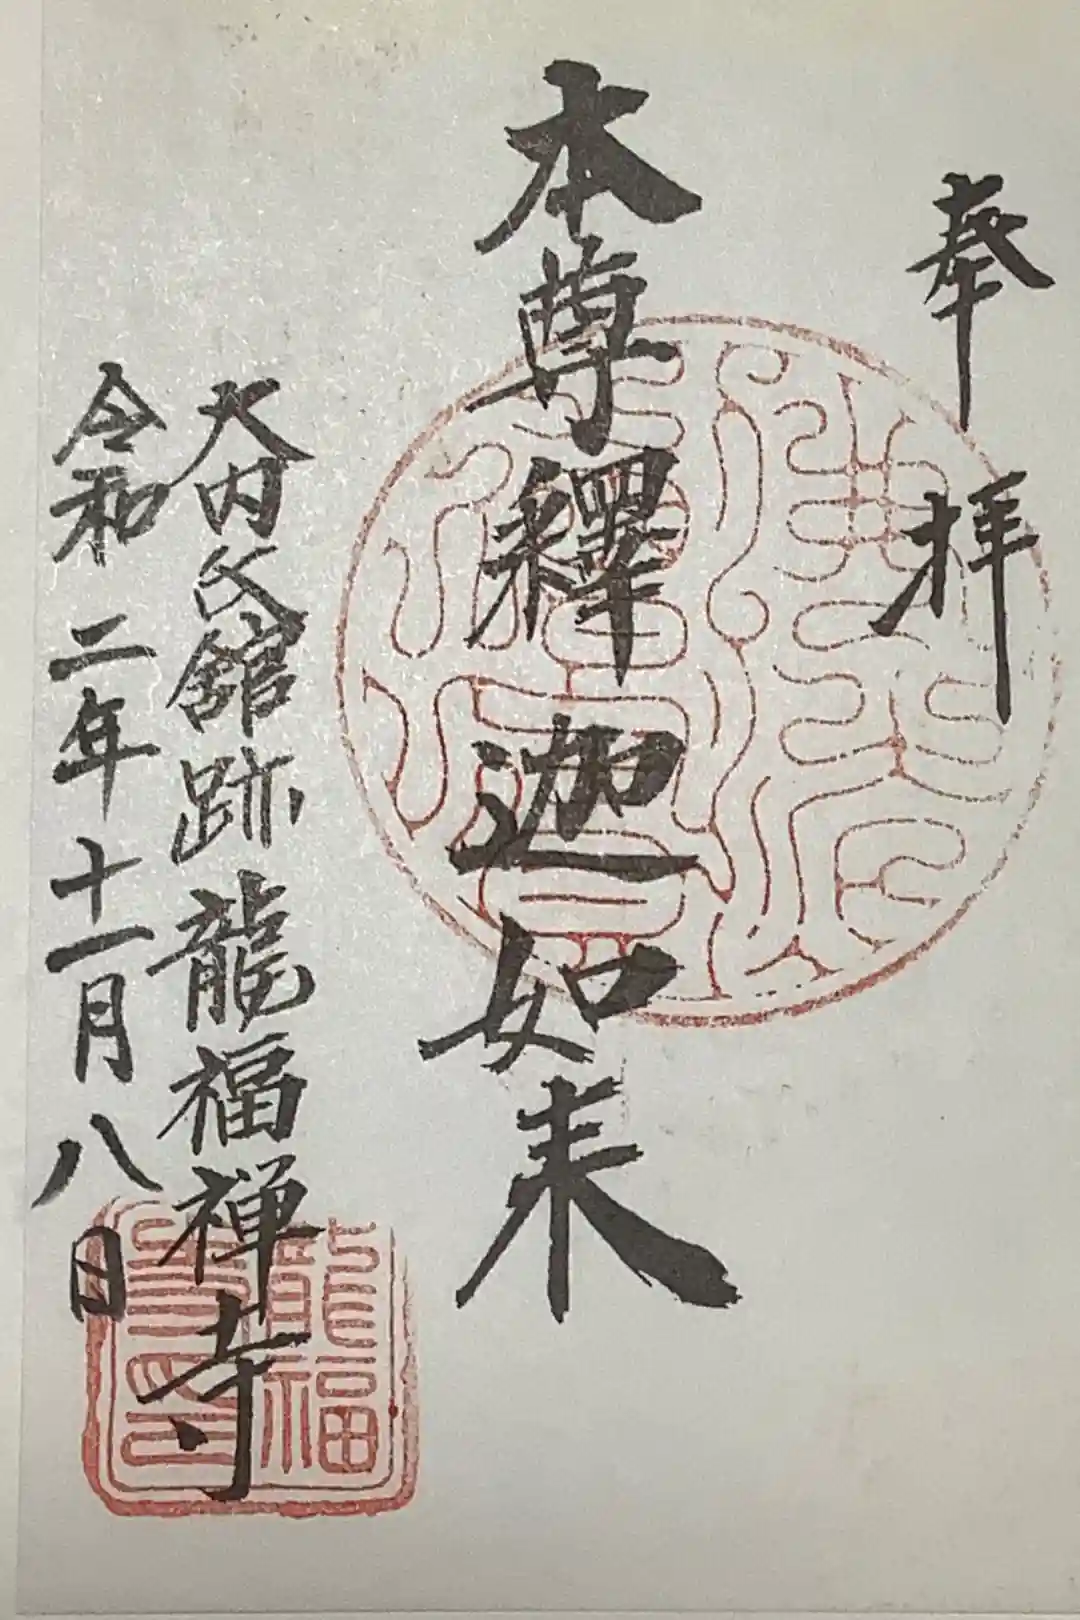 奉拝
本尊釋迦如来
大内氏館跡龍福禅寺
令和二年十一月八日
龍福
寺印